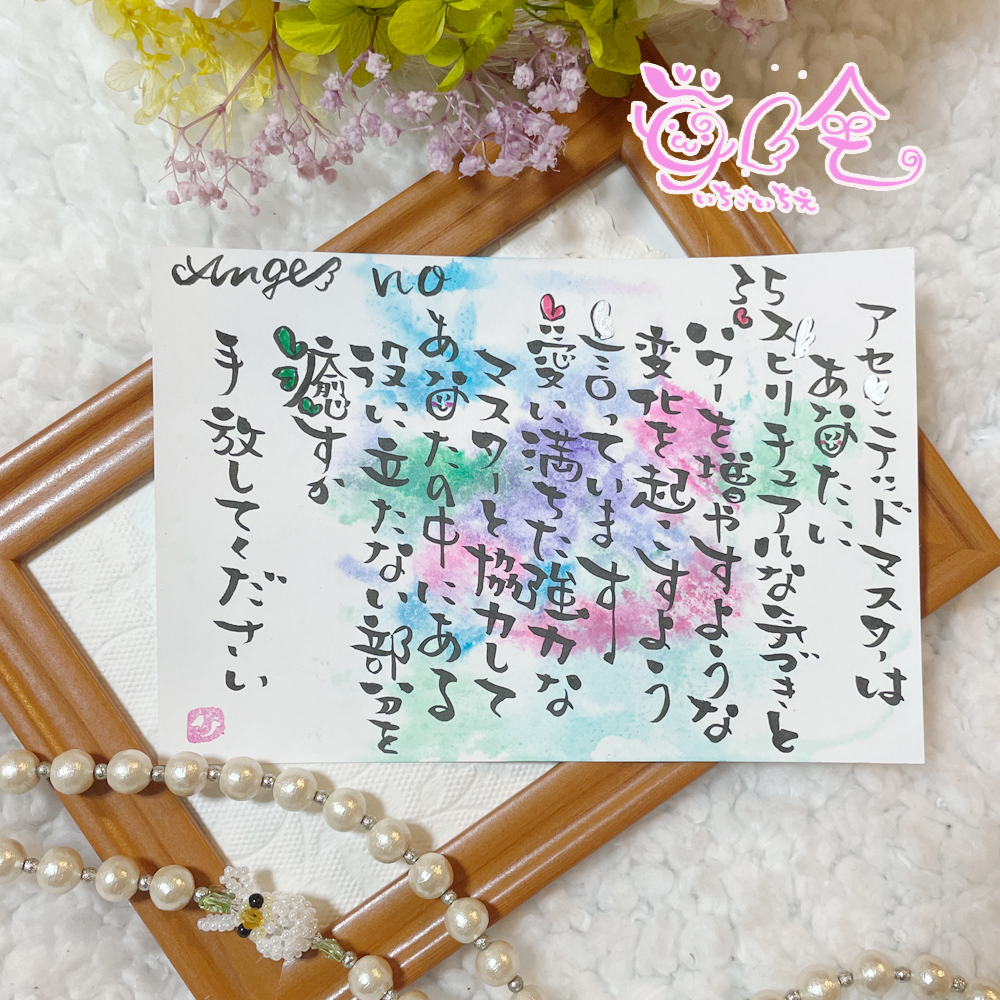 Angel no
35
アセンテッドマスターは
あなたに
スピリチュアルな気づきと
パワーを増やすような
変化を起こすよう
言っています
愛に満ちた強力な
マスターと協力して
あなたの中にある
役に立たない部分を
癒すか
手放してください
いちごいちえ